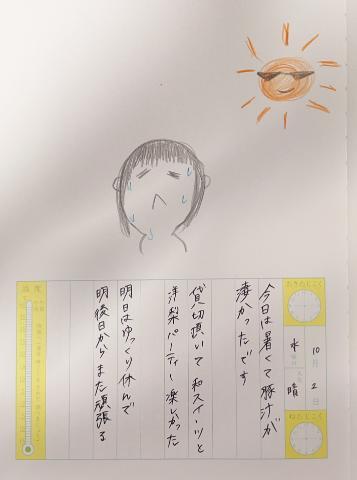 おきたじこく
10月2日
水曜日
晴
ねたじこく
今日は暑くて豚汁が
凄かったです
貸切頂いて和スイーツと
洋梨パーティー楽しかった
明日はゆっくり休んで
明後日からまた頑張る
温度